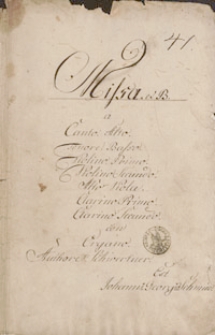 41
Missa. ex B.
a
Canto Alto.
Tenore Basso.
Violino Primo.
Violino Secundo.
Alto Viola.
Clarino Primo.
Clarino Secundo.
con
Organo.
Authore
Est
Johann Georg